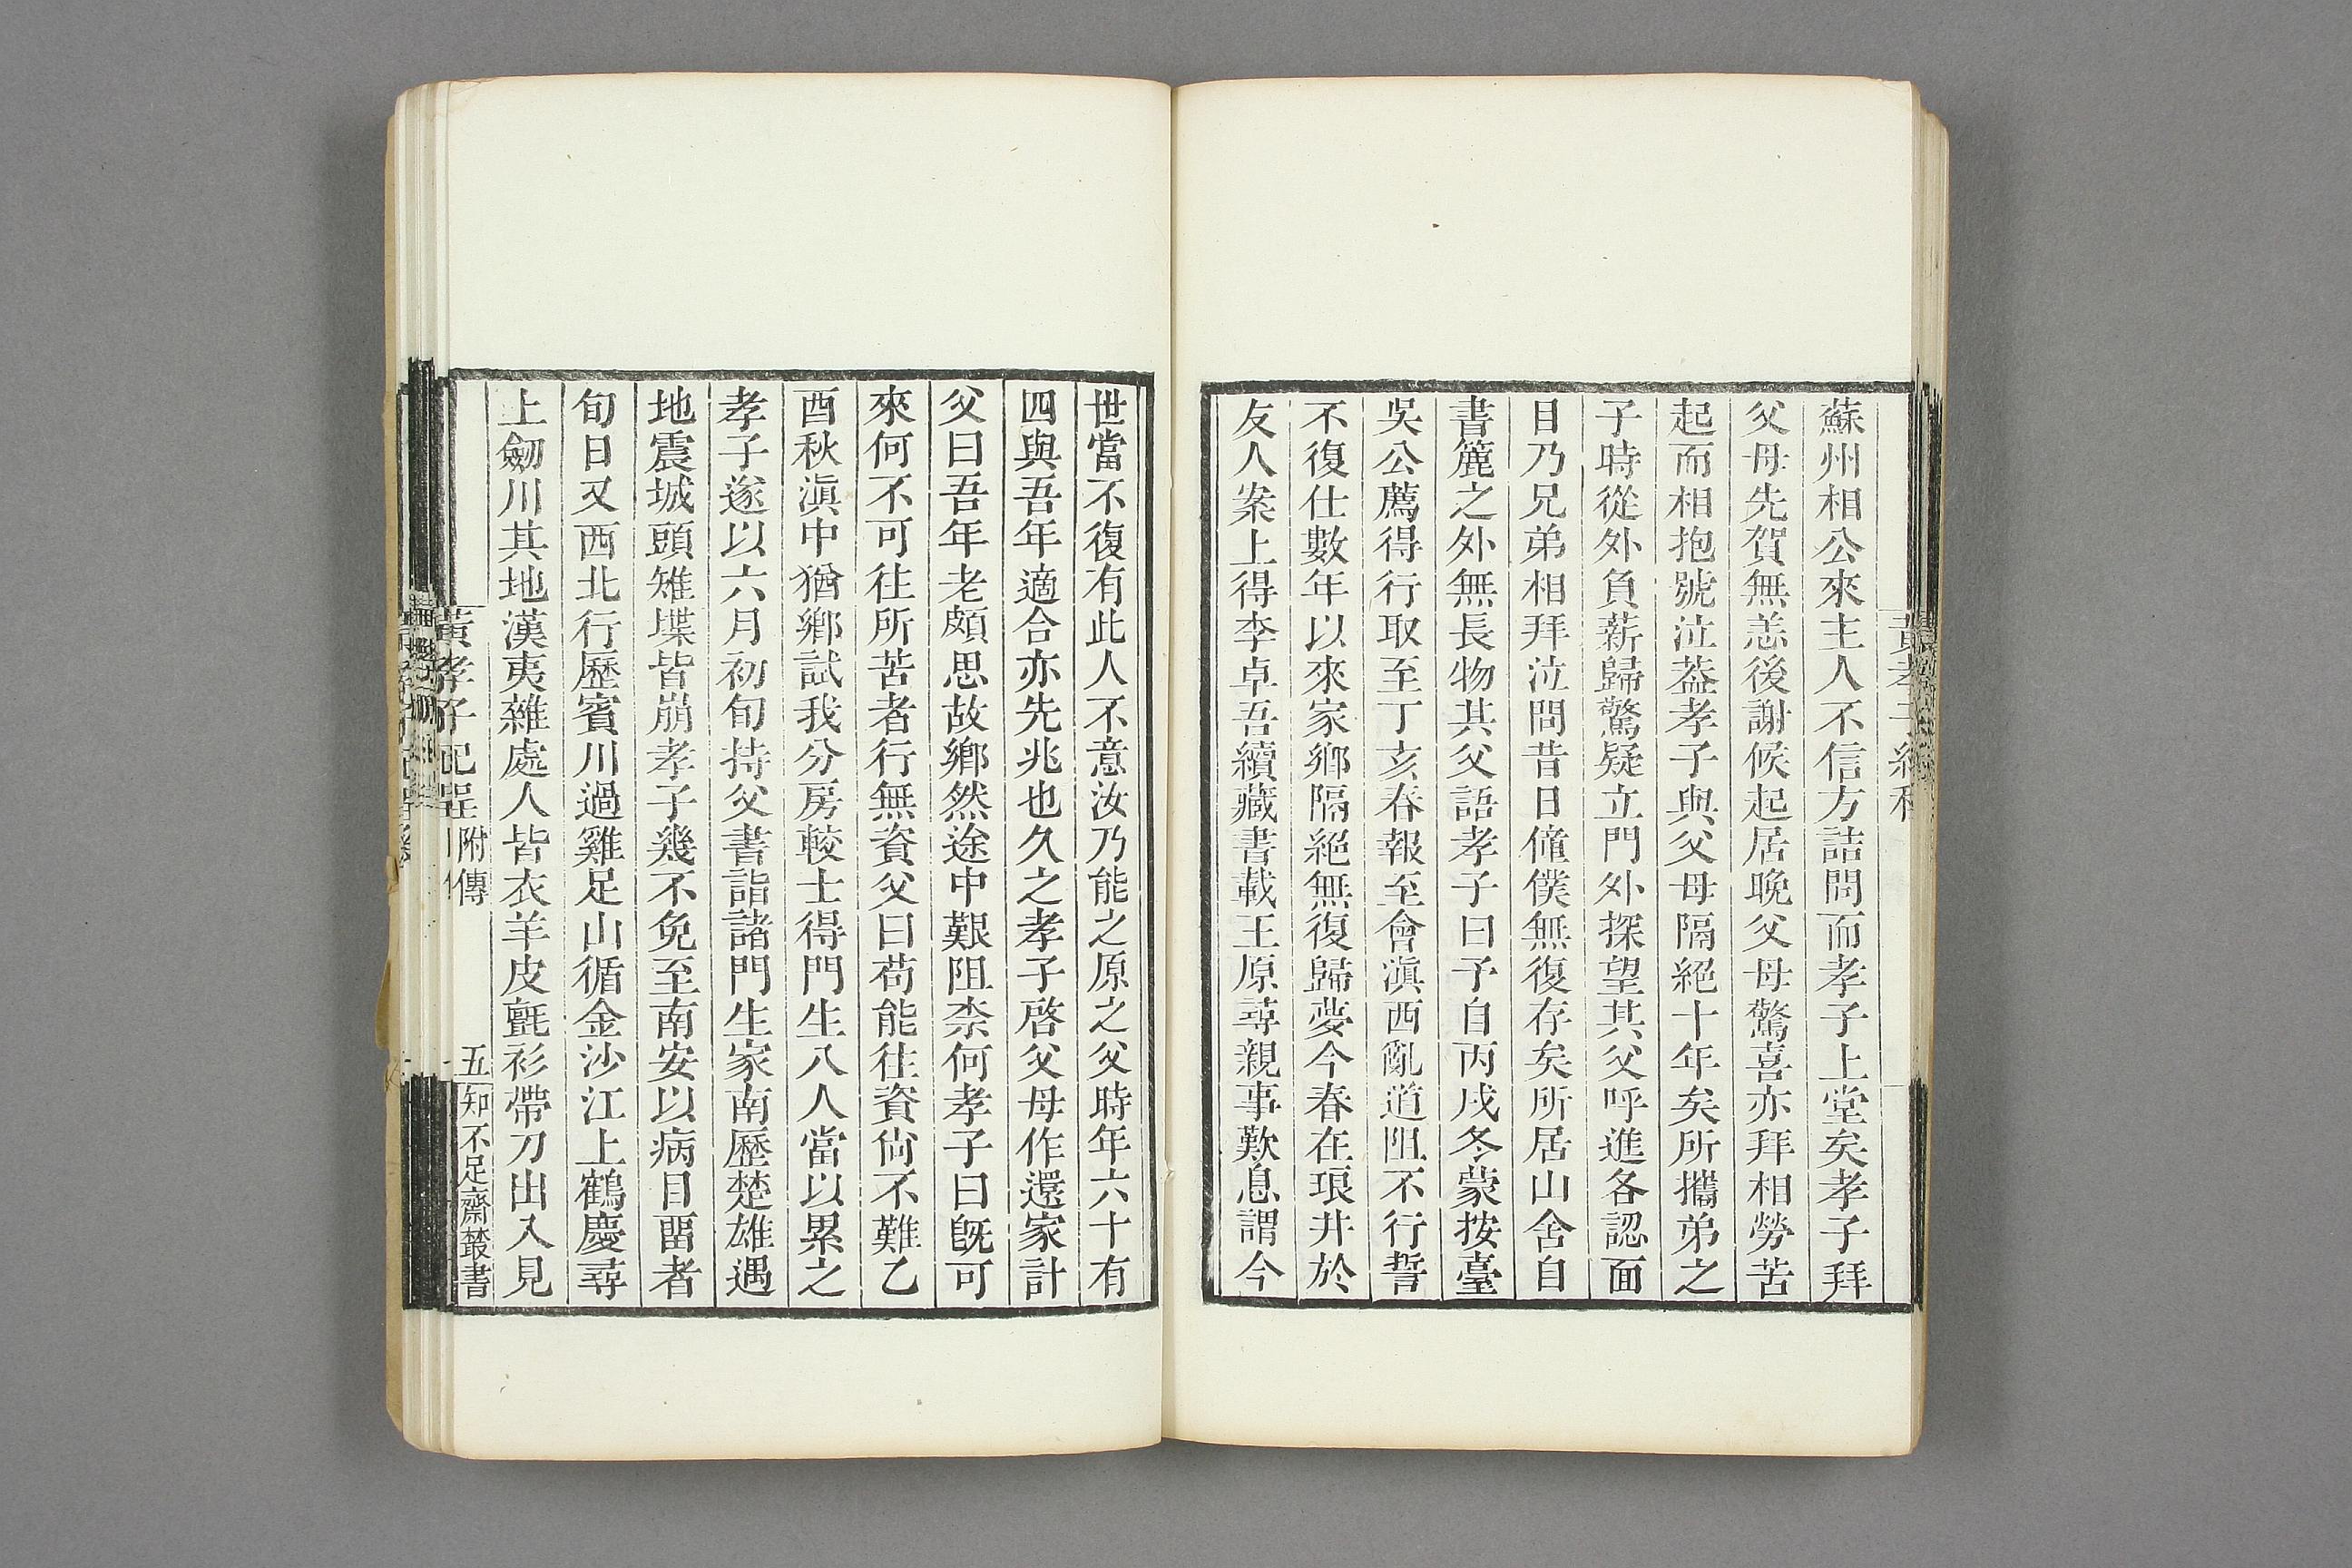 蘇州相公來主人不信方詰問而孝子上堂矣孝子拜
父母先賀無恙後謝候起居晚父母驚喜亦拜相勞苦
起而相抱號泣葢孝子與父母隔絕十年矣所攜弟之
子時從外負薪歸驚疑立門外探望其父呼進各認面
目乃兄弟相拜泣問昔日僮僕無復存矣所居山舍自
書簏之外無長物其父語孝子曰予自丙戌冬蒙按臺
吳公薦得行取至丁亥春報至會滇西亂道阻不行誓
不復仕數年以來家鄉隔絕無復歸夢今春在琅井於
友人案上得李卓吾續藏書載王原尋親事歎息謂今
世當不復有此人不意汝乃能之原之父時年六十有
四與吾年適合亦先兆也久之孝子啓父母作還家計
父曰吾年老頗思故鄉然途中艱阻柰何孝子曰旣可
來何不可往所苦者行無資父曰苟能往資尙不難乙
酉秋滇中猶鄉試我分房較士得門生八人當以累之
孝子遂以六月初旬持父書詣諸門生家南歷楚雄遇
地震城頭雉堞皆崩孝子幾不免至南安以病目畱者
旬日又西北行歷賓川過雞足山循金沙江上鶴慶尋
上劒川其地漢夷雜處人皆衣羊皮氈衫帶刀出入見
黃孝子紀程 附傳 五 知不足齋叢書